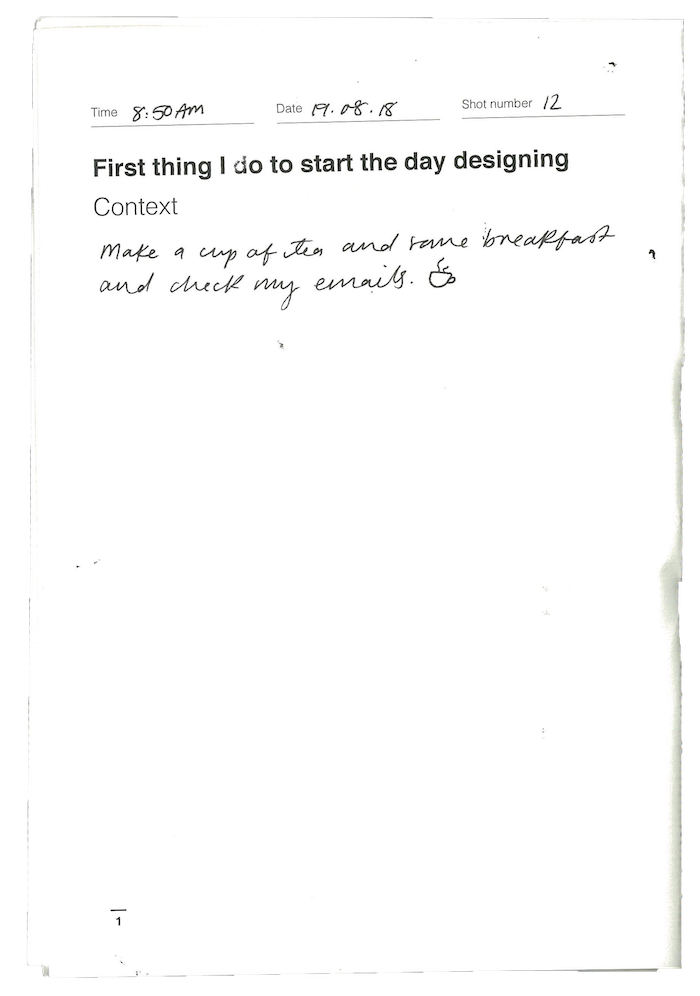 Time 8:50 AM Date 19.08.18 Shot number 12
First thing I do to start the day designing
Context
Make a cup of tea and some breakfast
and check my emails.
1